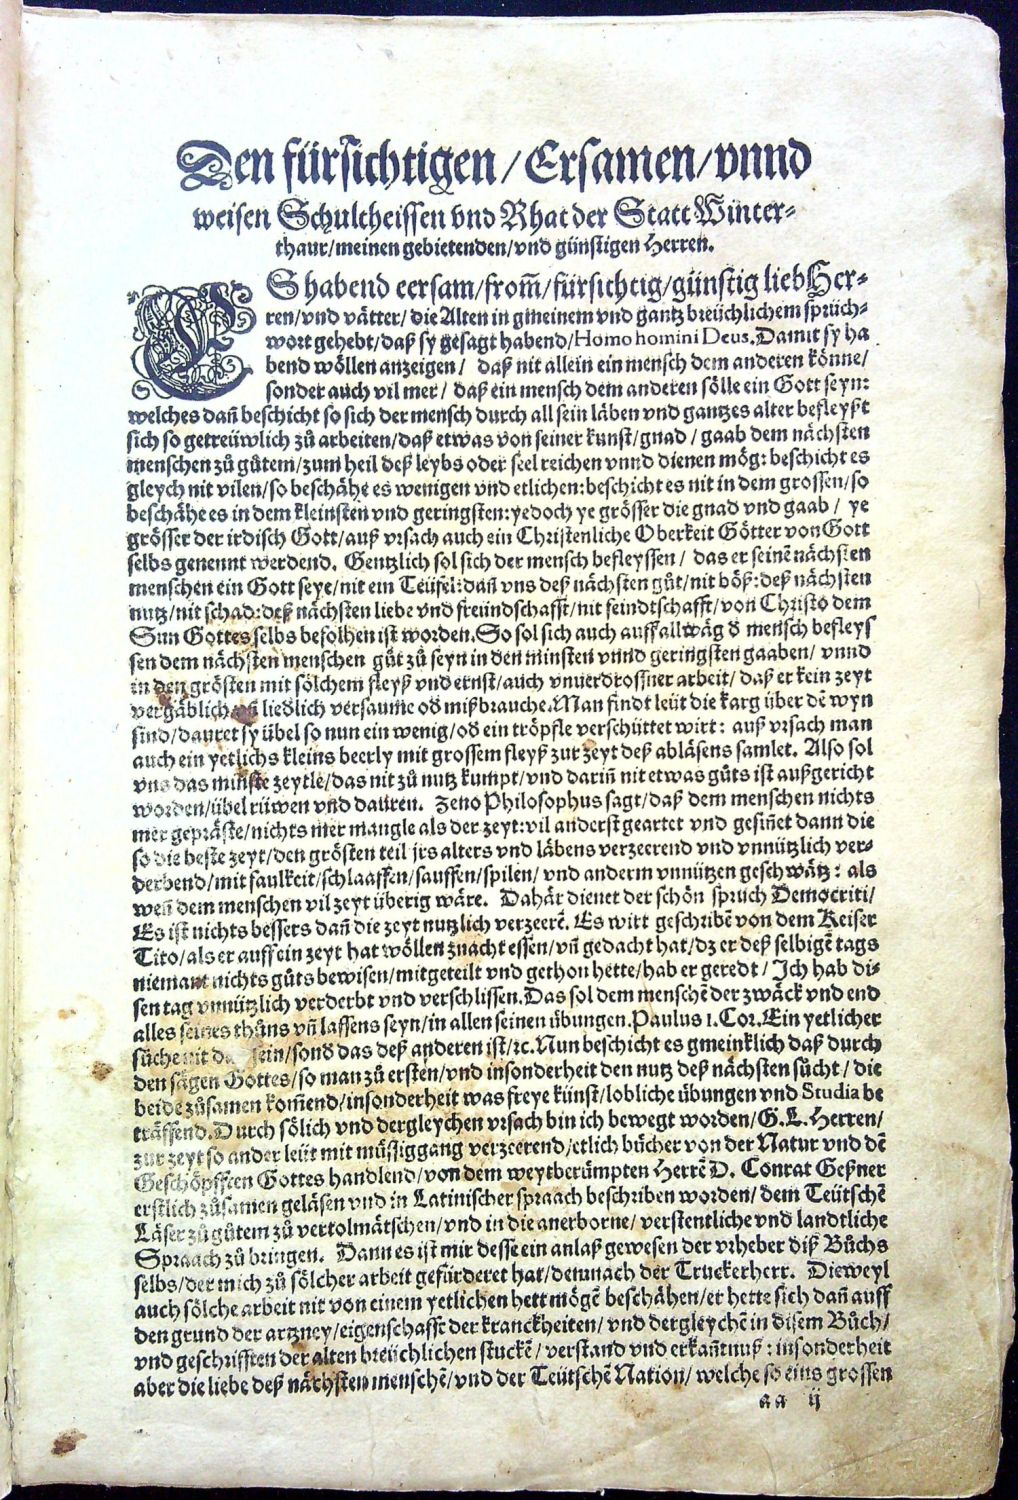 Den fürsichtigen/Ersamen/vnnd
weisen Schultheissen vnd Rhat der Statt Winter-
thaur/meinen gebietenden/vnd günstigen Herren.
ES habend eersam/from̃/fürsichtig/günstig lieb Her-
ren/vnd vätter/die Alten in gmeinem vnd gantz breüchlichem sprüch-
wort gehebt/daß sy gesagt habend/Homo homini Deus. Damit sy ha
bend wöllen anzeigen/ daß nit allein ein mensch dem anderen könne/
sonder auch vil mer/ daß ein mensch dem anderen sölle ein Gott seyn:
welches dañ beschicht so sich der mensch durch all sein läben vnd gantzes alter befleyßt
sich so getreüwlich zů arbeiten/daß etwas von seiner kunst/gnad/gaab dem nächsten
menschen zů gůtem/zum heil deß leybs oder seel reichen vnnd dienen mög: beschicht es
gleych nit vilen/so beschähe es wenigen vnd etlichen: beschicht es nit in dem grossen/so
beschähe es in dem kleinsten vnd geringsten: yedoch ye grösser die gnad vnd gaab/ ye
grösser der irdisch Gott/auß vrsach auch ein Christenliche Oberkeit Götter von Gott
selbs genennt werdend. Gentzlich sol sich der mensch befleyssen/ das er seinẽ nächsten
menschen ein Gott seye/nit ein Teüfel: dañ vns deß nächsten gůt/nit böß: deß nächsten
nutz/nit schad: deß nächsten liebe vnd freündschafft/nit feindtschafft/von Christo dem
Sun Gottes selbs befolhen ist worden. So sol sich auch auff allwäg d̕ mensch befleys
sen dem nächsten menschen gůt zů seyn in den minsten vnnd geringsten gaaben/ vnnd
in den grösten mit sölchem fleyß vnd ernst/auch vnuerdrossner arbeit/ daß er kein zeyt
vergäblich vñ liedlich versaume od̕ mißbrauche. Man findt leüt die karg über dẽ wyn
sind/dauret sy übel so nun ein wenig/od̕ ein tröpfle verschüttet wirt: auß vrsach man
auch ein yetlichs kleins beerly mit grossem fleyß zur zeyt deß abläsens samlet. Also sol
vns das minste zeytle/das nit zů nutz kumpt/vnd dariñ nit etwas gůts ist außgericht
worden/übel rüwen vnd dauren. Zeno Philosophus sagt/daß dem menschen nichts
mer gepräste/nichts mer mangle als der zeyt: vil anderst geartet vnd gesiñet dann die
so die beste zeyt/den grösten teil jrs alters vnd läbens verzeerend vnd vnnützlich ver-
derbend/mit faulkeit/schlaaffen/sauffen/spilen/ vnd anderm vnnützen geschwätz: als
weñ dem menschen vil zeyt überig wäre. Dahär dienet der schön spruch Democriti/
Es ist nichts bessers dañ die zeyt nutzlich verzeerẽ. Es wirt geschribẽ von dem Keiser
Tito/als er auff ein zeyt hat wöllen znacht essen/vñ gedacht hat/dz er deß selbigẽ tags
niemant nichts gůts bewisen/mitgeteilt vnd gethon hette/hab er geredt/Ich hab di-
sen tag vnnützlich verderbt vnd verschlissen. Das sol dem menschẽ der zwäck vnd end
alles seines thůns vñ lassens seyn/in allen seinen übungen. Paulus 1. Cor. Ein yetlicher
sůche nit sein/sond̕ das deß anderen ist/ꝛc. Nun beschicht es gmeinklich daß durch
den sägen Gottes/so man zů ersten/vnd insonderheit den nutz deß nächsten sůcht/ die
beide zůsamen kom̃end/insonderheit was freye künst/lobliche übungen vnd Studia be
träffend. Durch sölich vnd dergleychen vrsach bin ich bewegt worden/G. L. Herren/
zur zeyt so ander leüt mit müssiggang verzeerend/etlich bücher von der Natur vnd dẽ
Geschöpfften Gottes handlend/von dem weytberümpten Herrẽ D. Conrat Geßner
erstlich zůsamen geläsen vnd in Latinischer spraach beschriben worden/ dem Teütschẽ
Läser zů gůtem zů vertolmätschen/vnd in die anerborne/ verstentliche vnd landtliche
Spraach zů bringen. Dann es ist mir desse ein anlaß gewesen der vrheber diß Bůchs
selbs/der mich zů sölcher arbeit gefürderet hat/demnach der Truckerherr. Dieweyl
auch sölche arbeit nit von einem yetlichen hett mögẽ beschähen/er hette sich dañ auff
den grund der artzney/eigenschafft der kranckheiten/ vnd dergleychẽ in disem Bůch/
vnd geschrifften der alten breüchlichen stuckẽ/ verstand vnd erkañtnuß: insonderheit
aber die liebe deß nächsten menschẽ/vnd der Teütschẽ Nation/ welche so eins grossen
aa ij